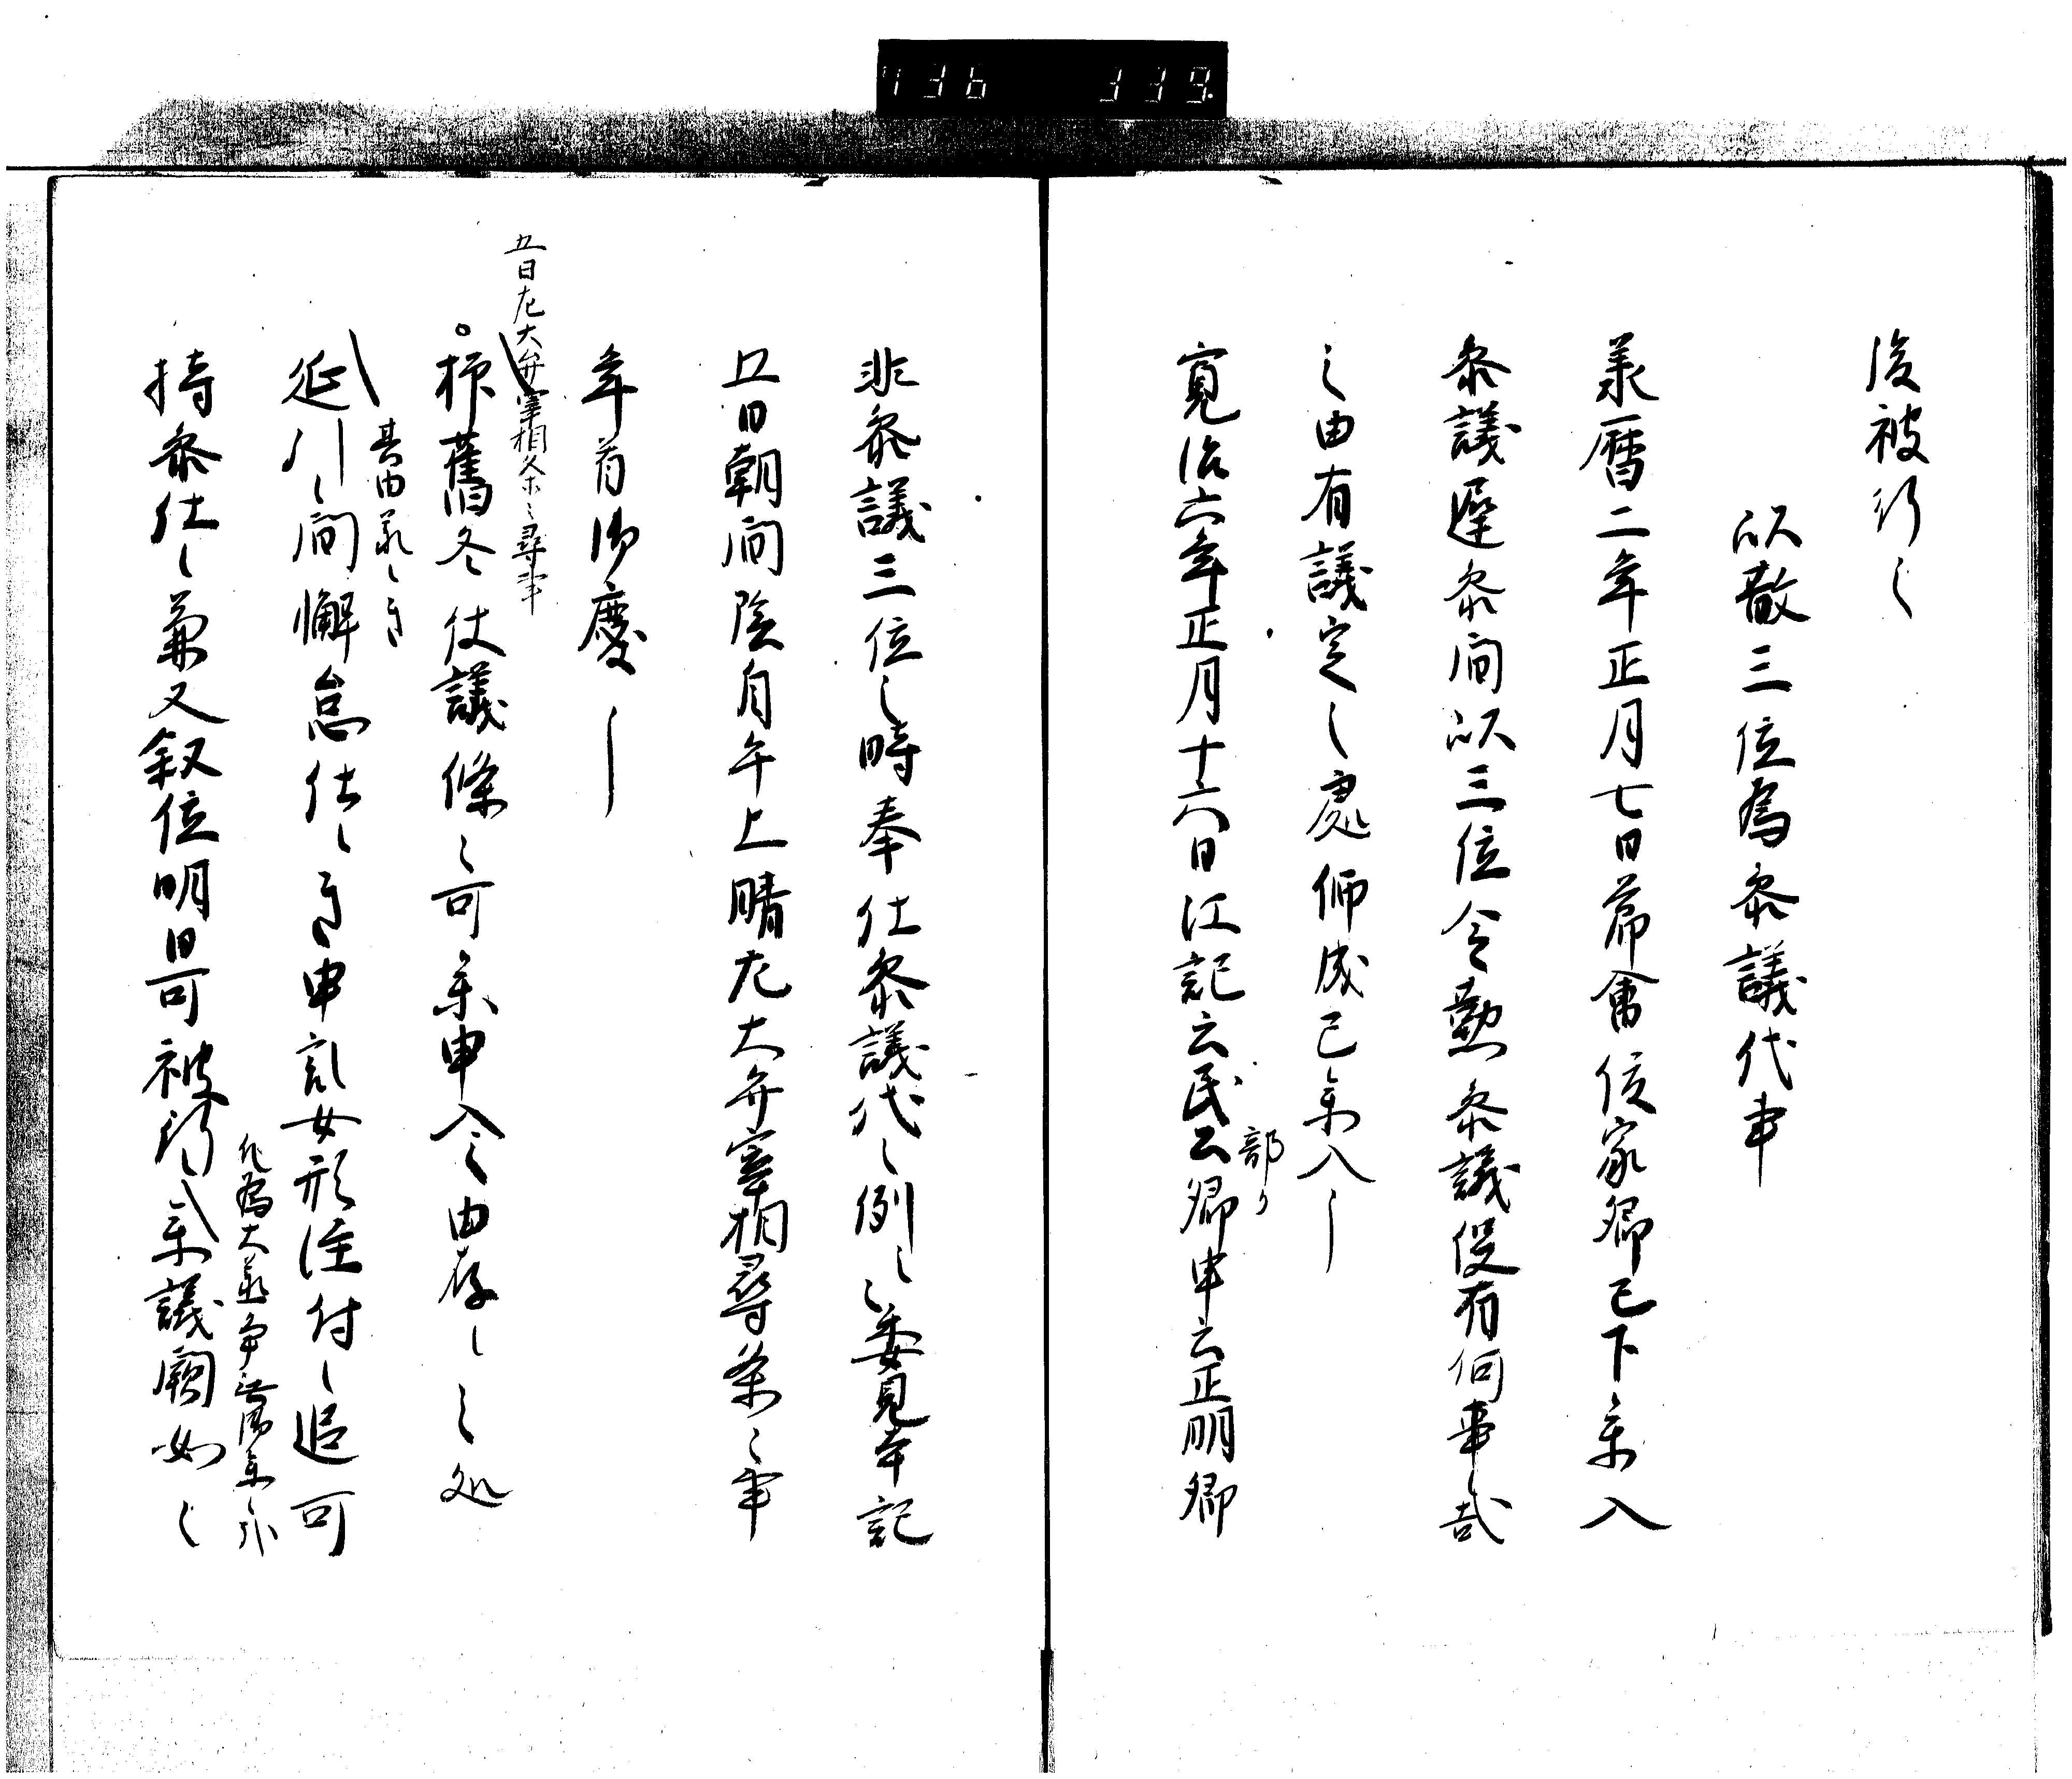 後被行之
以散三位為参議代事
承暦二年正月七日節會俊家卿已下参入
参議遅参間以三位令勤参議役有何事哉
之由有議定之處師成已参入之
寛治六年正月十六日江記云民公卿申云正明卿
部カ
非参議三位之時奉仕参議代之例之委見本記
五日朝間陰自午上晴左大弁宰相尋条々事
年首御慶
五日左大弁宰相条々尋事
抑舊冬仗議條々可参申入之由存之之処
其由承了
延引之間懈怠仕申訖女形注付之追可
持参仕之兼又叙位明日可被行参議闕如之